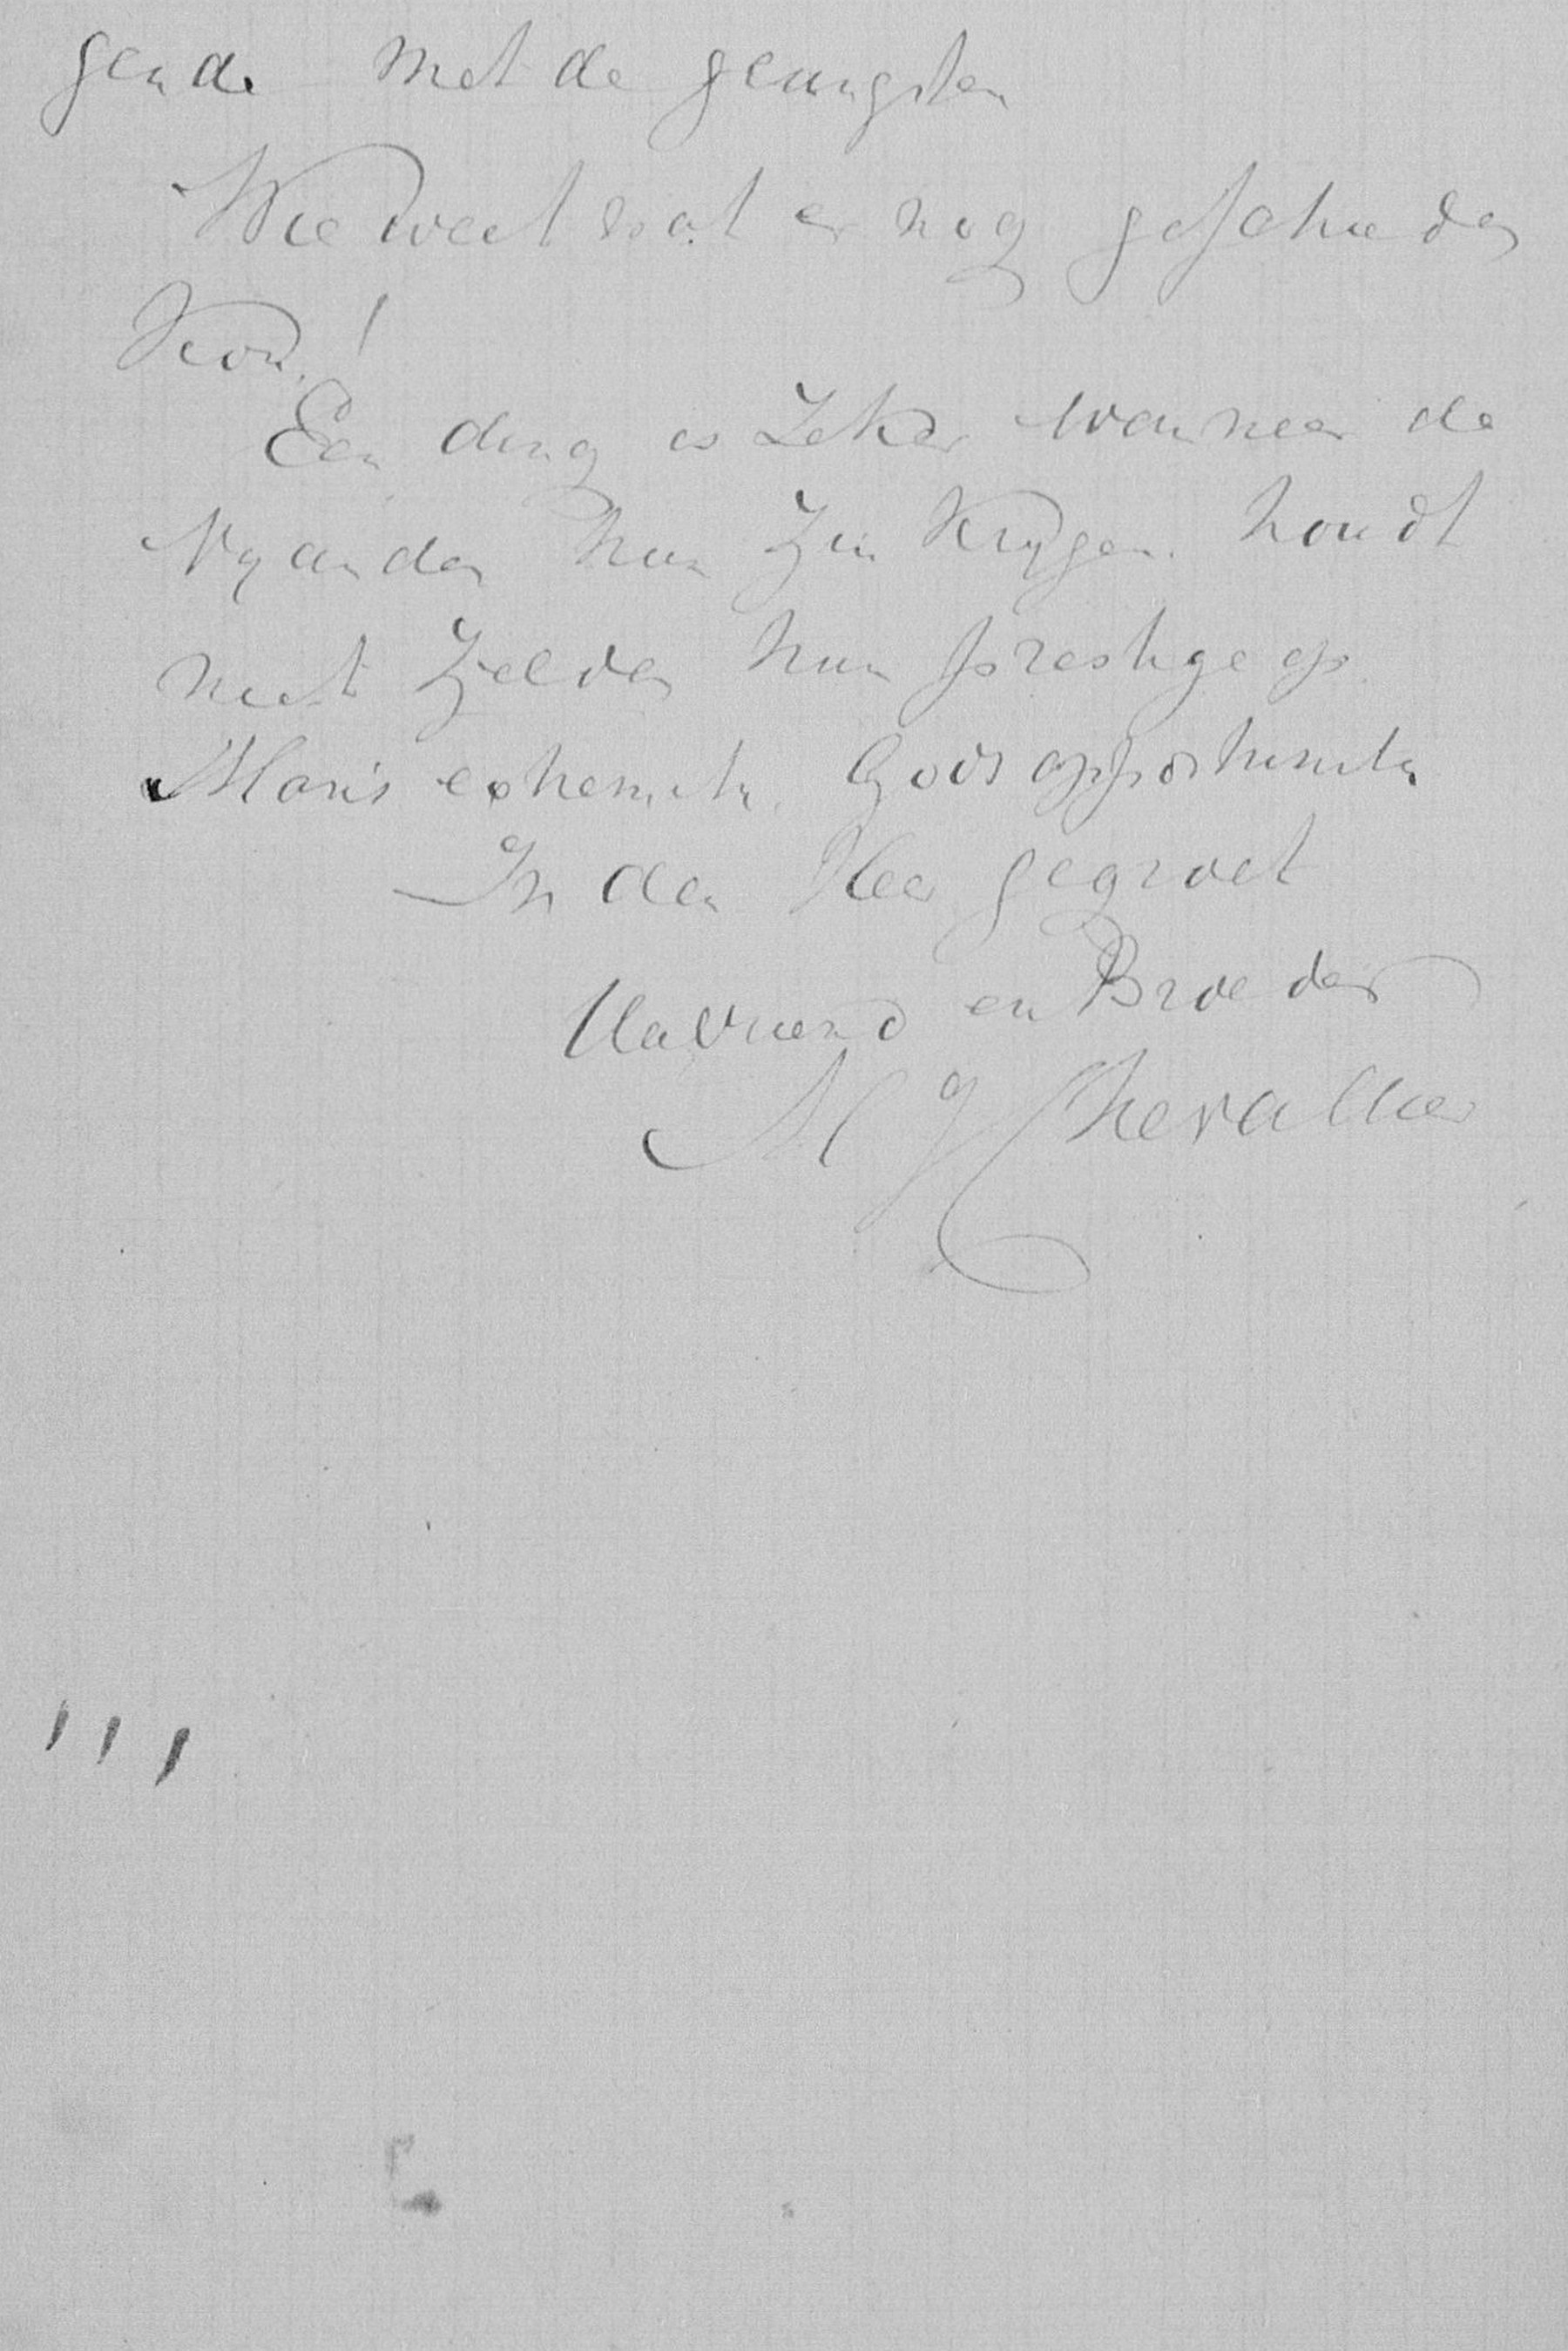 gende met de geringsten
Wie weet wat er nog geschieden
Kon!
Een ding is Zeker wanneer de
Vyanden hun Zin Krygen. houdt
niet Zelden hun prestige op
Man's extremity. Gods opportunity
In den Heer gegroet
Uw Vriend en Broeder
M J Chevallier